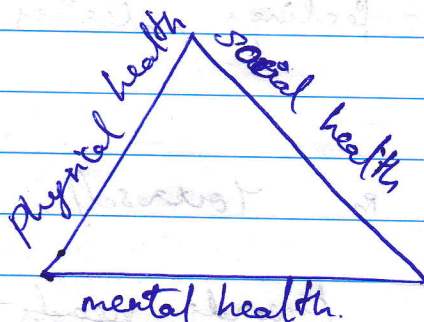 physical health
social health
mental health.